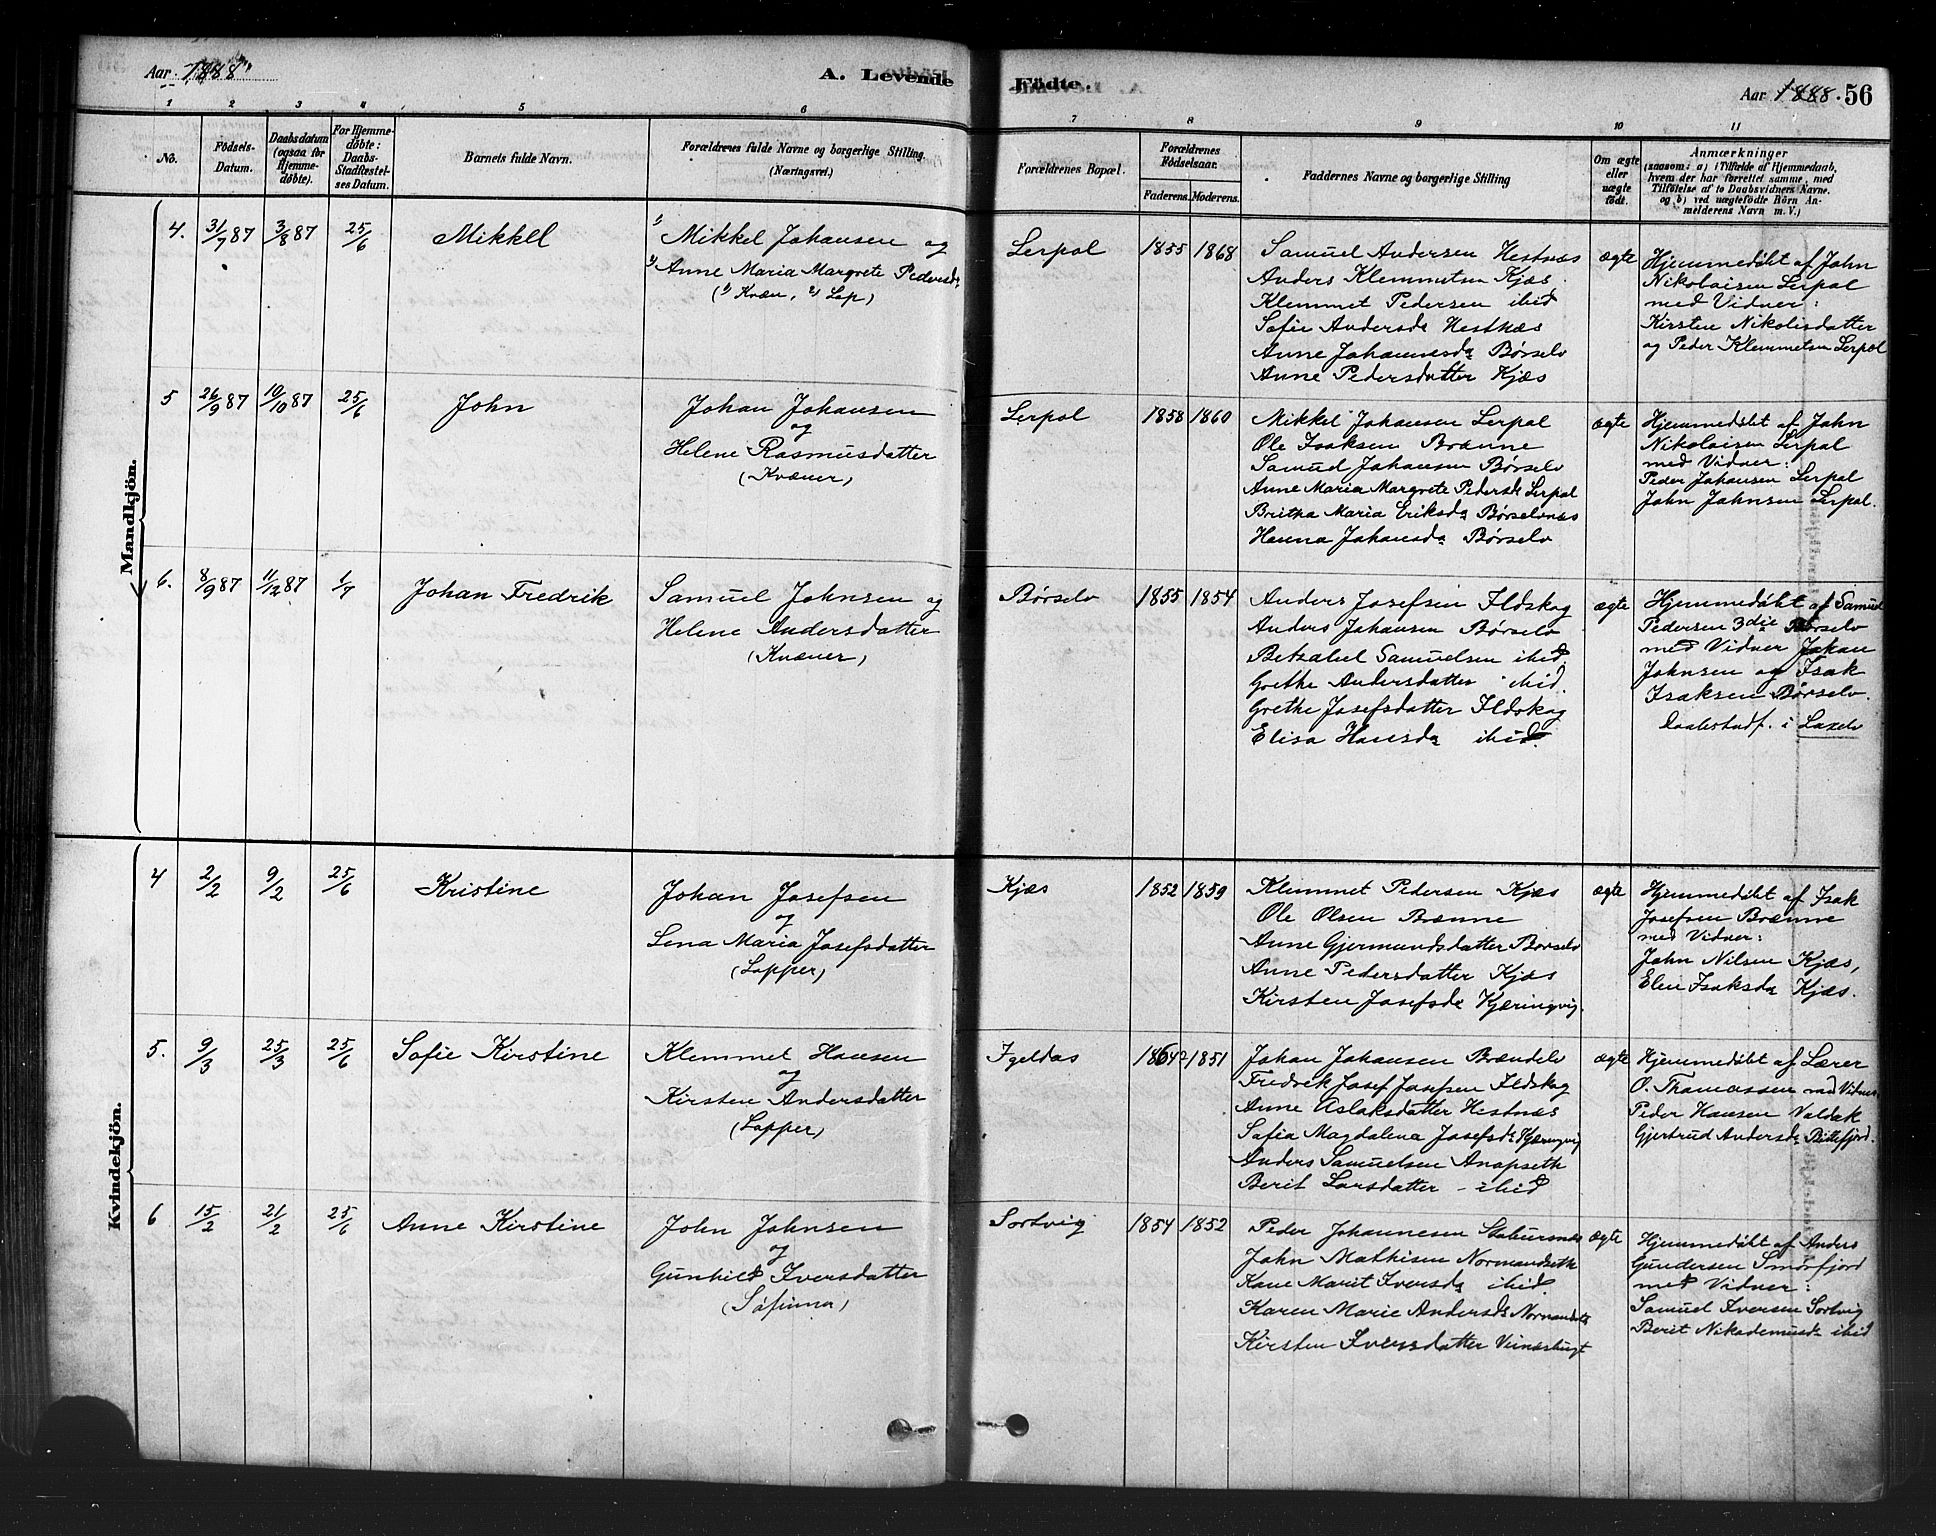 Aar 1888. A. Levende Födte. Aar 1888. 56
1 2 3 4 5 6 7 8 9 10 11
No. Födsels-Datum. Daabsdatum (ogsaa for Hjemme-døbte). For Hjemme-døbte: Daabs-Stadfæstel-ses Datum. Barnets fulde Navn. Forældrenes fulde Navne og borgerlige Stilling (Næringsvei.) Forældrenes Bopæl. Forældrenes Födselsaar. Faderens. Moderens. Faddernes Navne og borgerlige Stilling Om ægte eller uægte født. Anmærkninger (saasom: a) i Tilfælde af Hjemmedaab, hvem der har forrettet samme, med Tilföielse af to Daabsvidners Navne. og b) ved uægtefödte Börn An-melderens Navn m. V.)
Mandkjön.
4. 31/7 87 3/8 87 25/6 Mikkel
1) Mikkel Johansen og
2) Anne Maria Margrete Pedersd.
(1) Kvæn, 2) Lap)
Lerpol 1855 1868
Samuel Andersen Hestnæs
Anders Klemmetsen Kjæs
Klemmet Pedersen ibid
Sofie Andersda Hestnæs
Anne Johannesda Børselv
Anne Pedersdatter Kjæs
ægte
Hjemmedøbt af John
Nikolaisen Lerpol
med Vidner:
Kirsten Nikolisdatter
og Peder Klemmetsen Lerpol
5 26/9 87 10/10 87 25/6 John
Johan Johansen
og
Helene Rasmusdatter
(Kvæner)
Lerpol 1858 1860
Mikkel Johansen Lerpol
Ole Isaksen Brænne
Samuel Johansen Børselv
Anne Maria Margrete Pedersd. Lerpol
Britha Maria Eriksda Børselvnæs
Hanna Johansda Børselv
ægte
Hjemmedøbt af John
Nikolaisen Lerpol
med Vidner:
Peder Johansen Lerpol
John Johnsen Lerpol.
6. 8/9 87 11/12 87 1/7 Johan Fredrik
Samuel Johnsen og
Helene Andersdatter
(Kvæner)
Børselv 1855 1854
Anders Josefsen Ildskog
Anders Johansen Børselv
Betsabel Samuelsen ibid.
Grethe Andersdatter ibid.
Grethe Josefsdatter Ildskog
Elisa Hansda ibid.
ægte
Hjemmedøbt af Samuel
Pedersen 3die Børselv
med Vidner Johan
Johnsen og Isak
Isaksen Børselv.
Daabstadf. i Laxelv
Kvindekjön.
4 2/2 9/2 25/6 Kristine
Johan Josefsen
og
Lena Maria Josefsdatter
(Lapper)
Kjæs 1852 1859
Klemmet Pedersen Kjæs
Ole Olsen Brænne
Anne Gjermundsdatter Børselv
Anne Pedersdatter Kjæs
Kirsten Josefsda Kjæringvig.
ægte
Hjemmedøbt af Isak
Josefsen Brænne
med Vidner:
John Nilsen Kjæs,
Elen Isaksda Kjæs.
5. 9/3 25/3 25/6 Sofie Kirstine
Klemmet Hansen
og
Kirsten Andersdatter
(Lapper)
Igeldas 1851
Johan Johansen Brændelv
Fredrik Josef Josefsen Ildskog
Anne Aslaksdatter Hestnæs
Sofia Magdalena Josefsda Kjæringvig
Anders Samuelsen Anopseth
Berit Larsdatter - ibid
ægte
Hjemmedøbt af Lærer
O. Thomassen med Vidner
Peder Hansen Valdak
Gjertrud Andersda
6 15/2 21/2 25/6 Anne Kirstine
John Johnsen
og
Gunhild Iversdatter
(Søfinner)
Sortvig 1854 1852
Peder Johannesen Stabursnæs
John Mathisen Normandseth
Kane Marit Iversda ibid.
Karen Marie Andersda Normandseth
Kirsten Iversdatter
ægte
Hjemmedøbt af Anders
Gundersen Smørfjord
med Vidner:
Samuel Iversen Sortvig
Berit Nikodemusda ibid